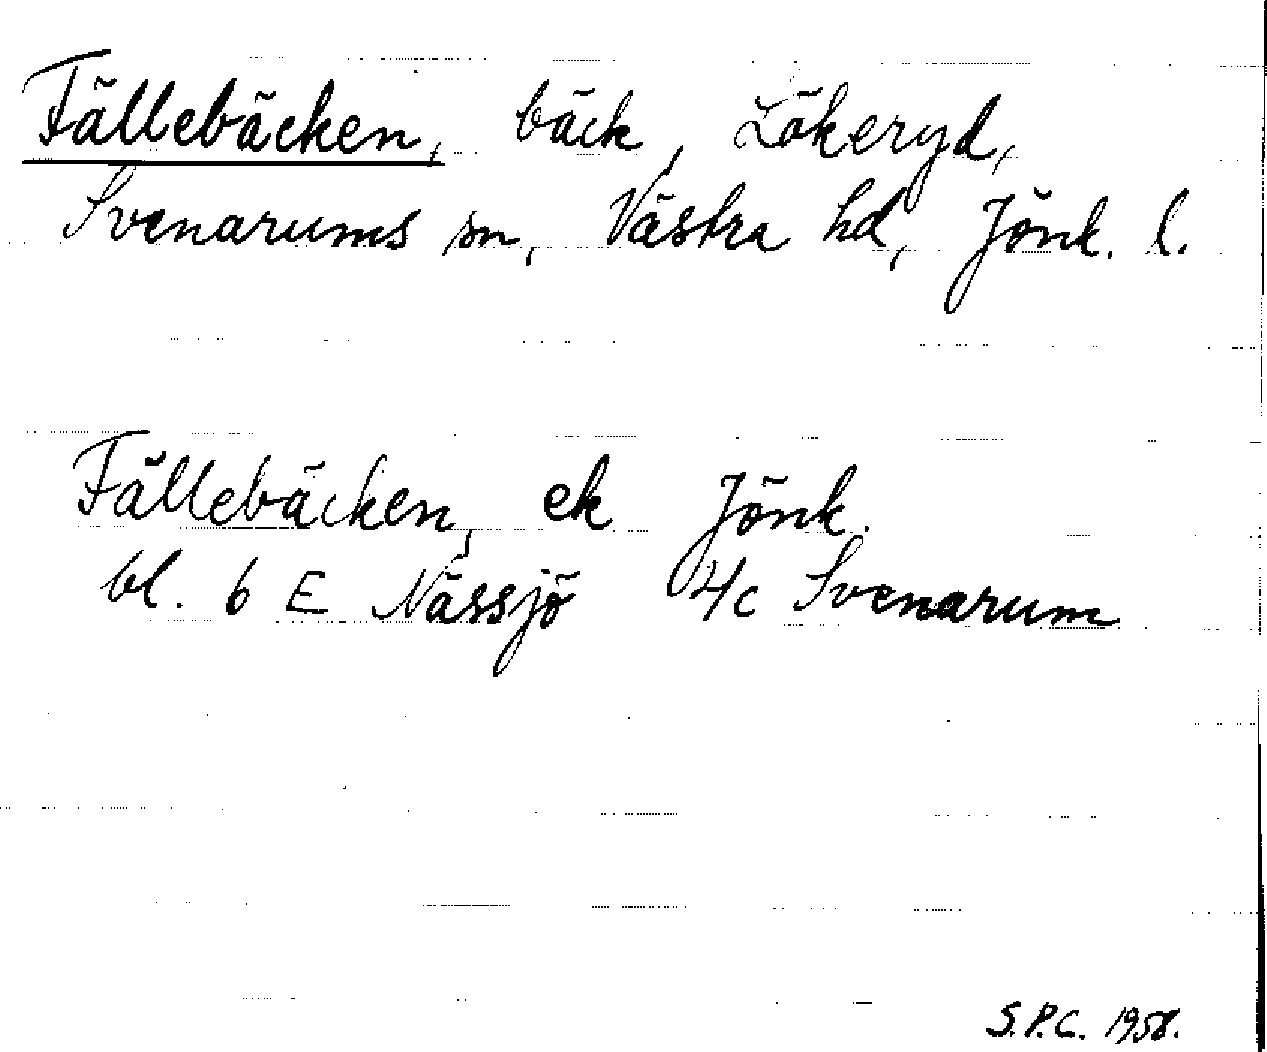 Fällebäcken, bäck, Lökeryd,
Svenarums sn, Västra hd, Jönk. l.
Fällebäcken, ek Jönk.
bl. 6 E Nässjö 4c Svenarum
S.P.C. 1958.